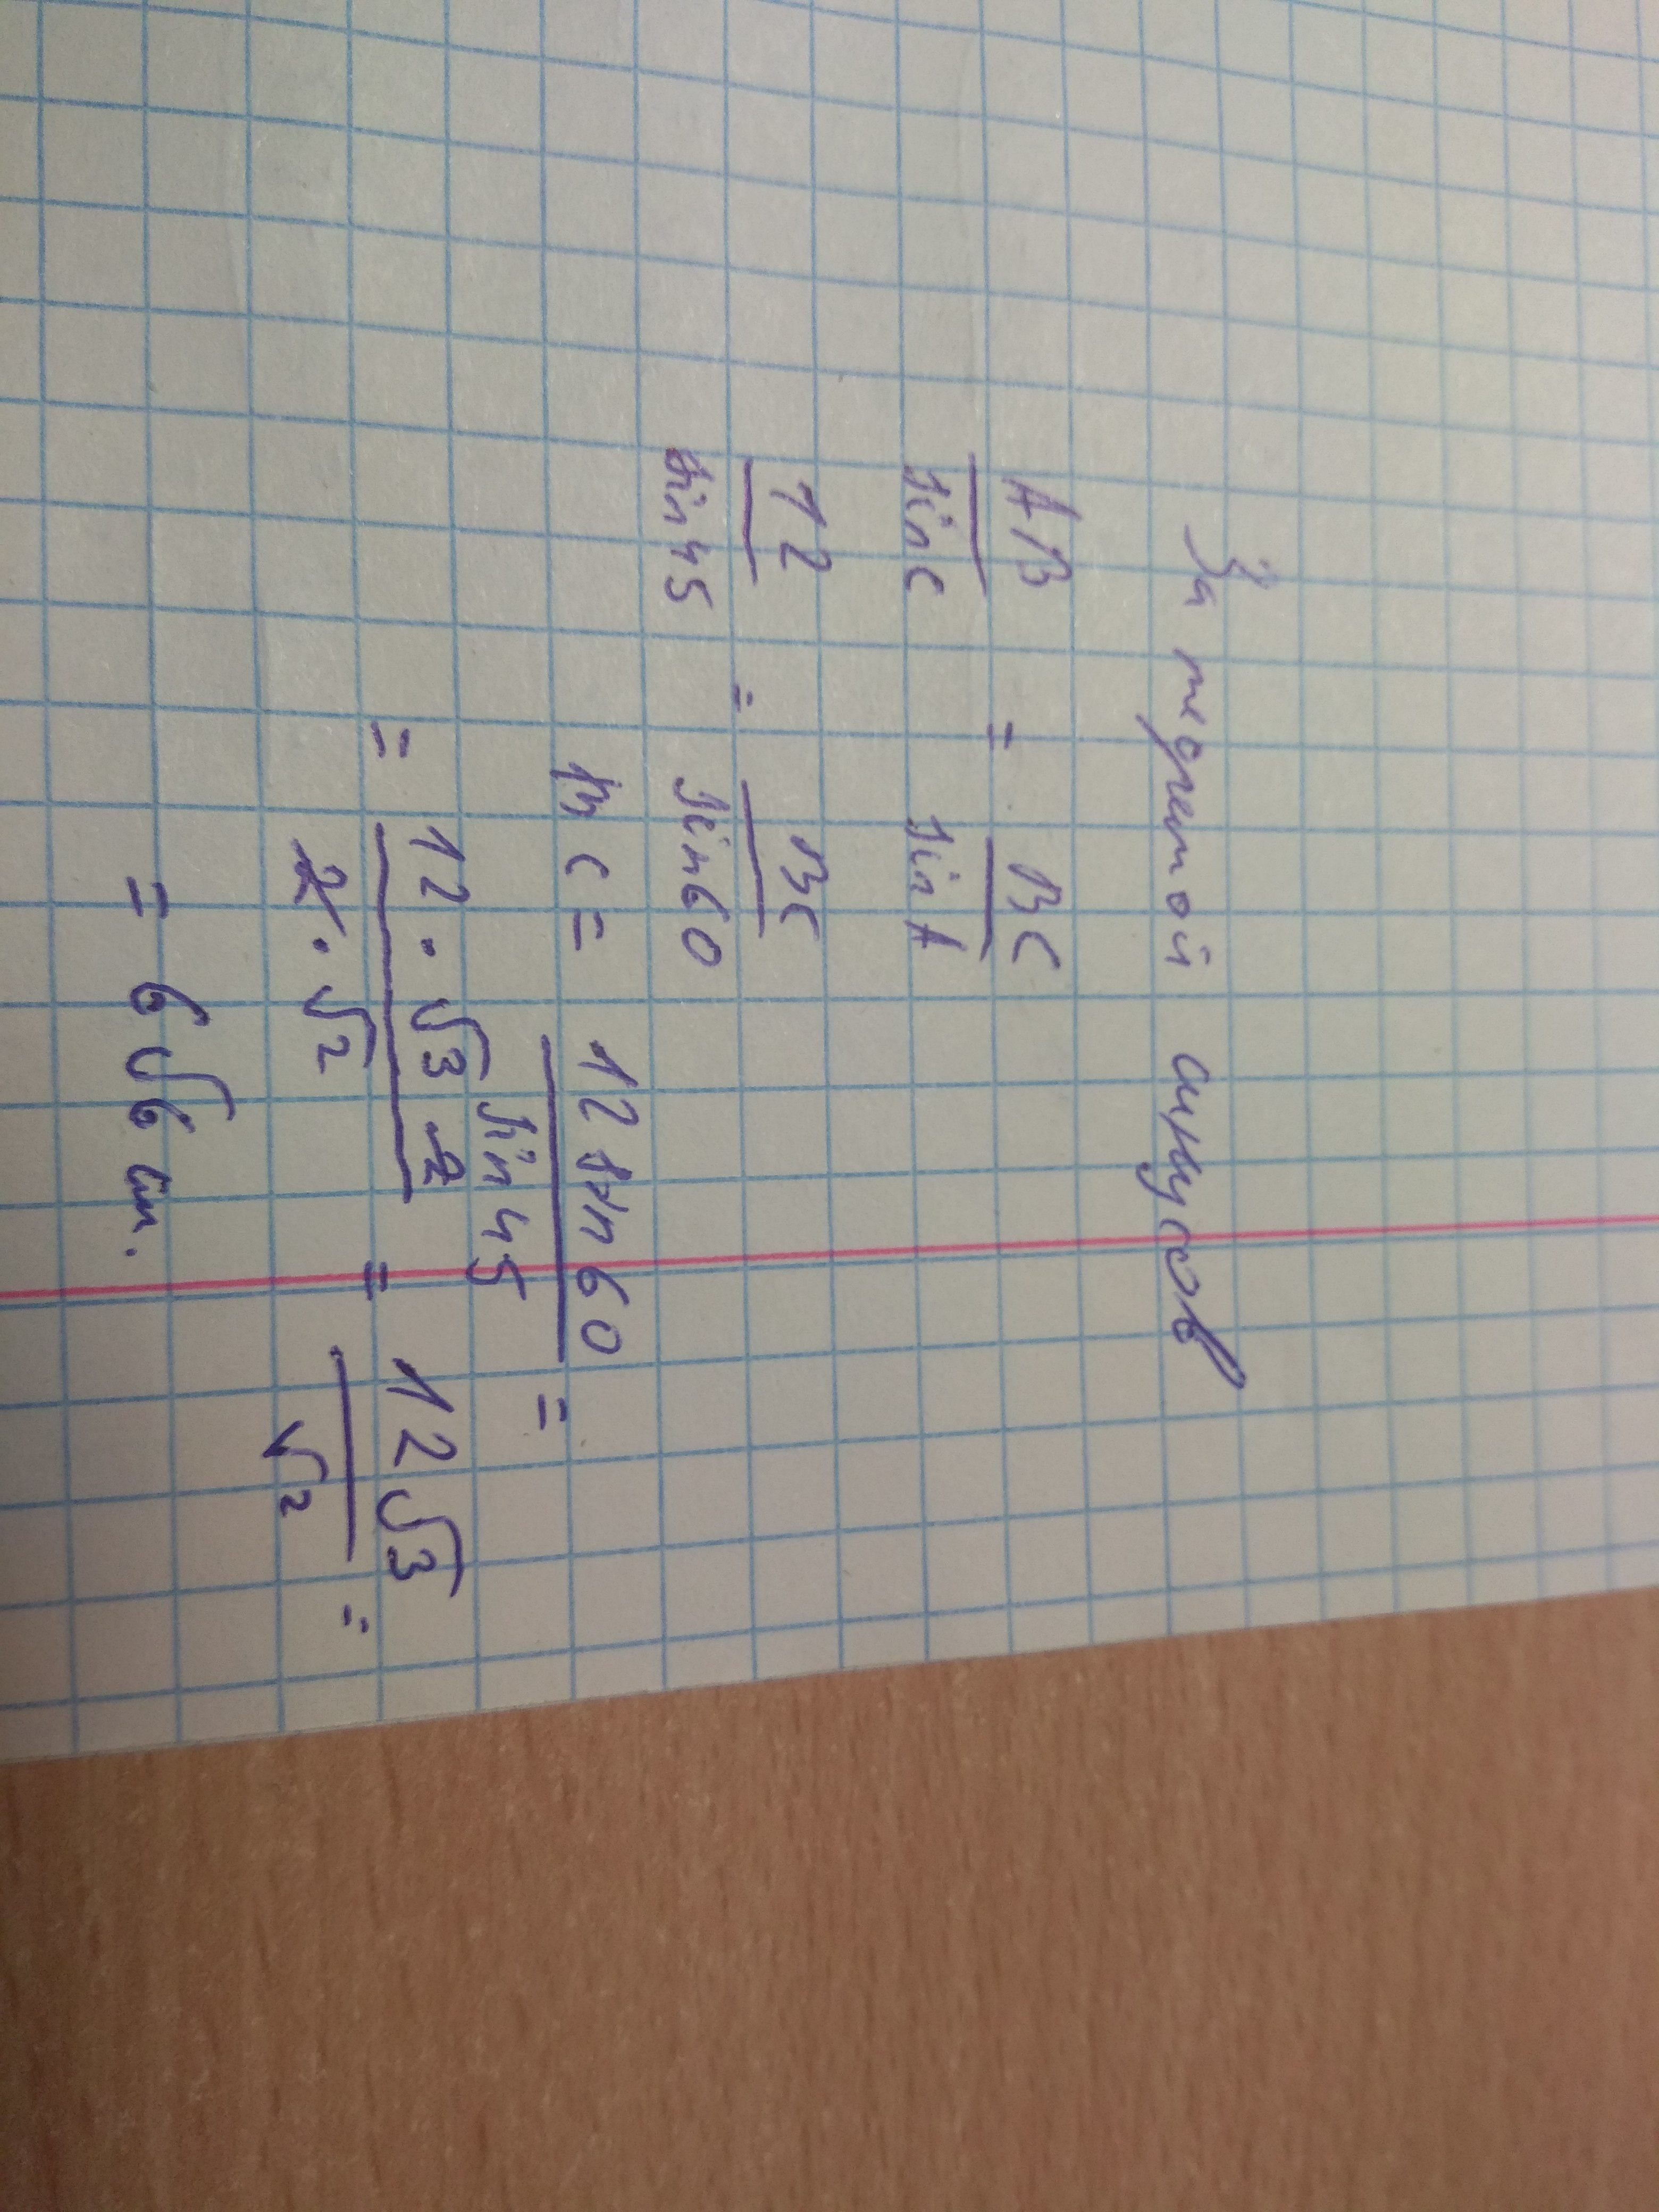 За теоремой синусов
AB/sin C = BC/sin A
12/sin 45 = BC/sin 60
BC = 12 sin 60/sin 45 =
= 12 · √3 · 2/2 · √2 = 12√3/√2 =
= 6√6 см.